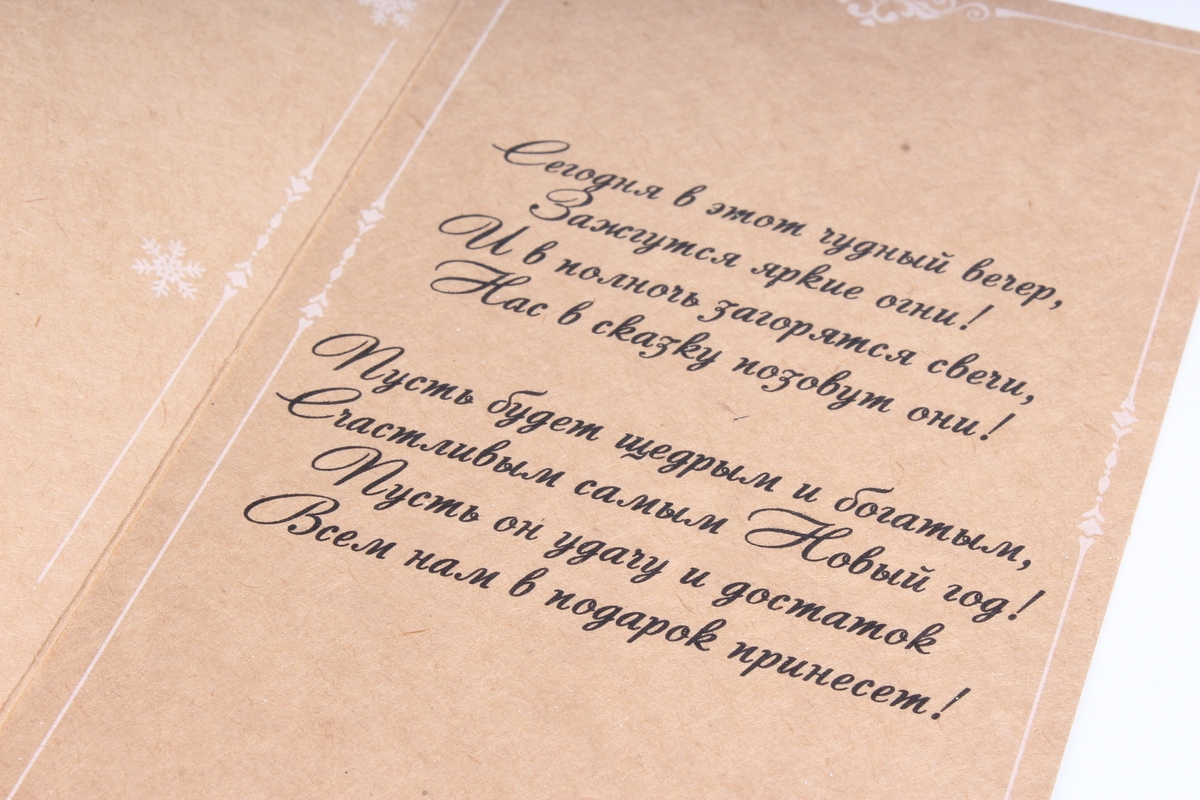 Сегодня в этот чудный вечер,
Зажгутся яркие огни!
И в полночь загорятся свечи,
Нас в сказку позовут они!
Пусть будет щедрым и богатым,
Счастливым самым Новый год!
Пусть он удачу и достаток
Всем нам в подарок принесет!